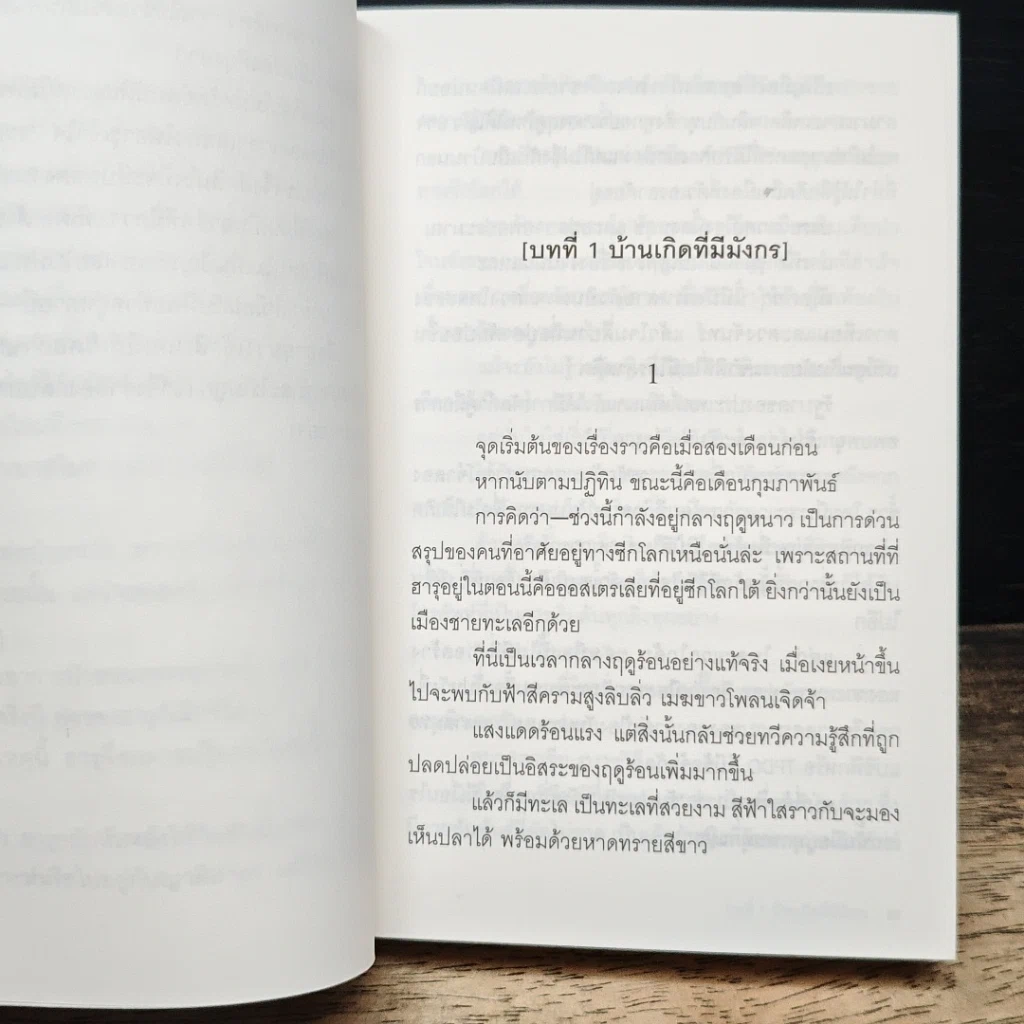 [บทที่ 1 บ้านเกิดที่มีมังกร]
1
จุดเริ่มต้นของเรื่องราวคือเมื่อสองเดือนก่อน
หากนับตามปฏิทิน ขณะนี้คือเดือนกุมภาพันธ์
การคิดว่า—ช่วงนี้กำลังอยู่กลางฤดูหนาว เป็นการด่วน
สรุปของคนที่อาศัยอยู่ทางซีกโลกเหนือนั่นล่ะ เพราะสถานที่ที่
ฮารุอยู่ในตอนนี้คือออสเตรเลียที่อยู่ซีกโลกใต้ ยิ่งกว่านั้นยังเป็น
เมืองชายทะเลอีกด้วย
ที่นี่เป็นเวลากลางฤดูร้อนอย่างแท้จริง เมื่อเงยหน้าขึ้น
ไปจะพบกับฟ้าสีครามสูงลิบลิ่ว เมฆขาวโพลนเจิดจ้า
แสงแดดร้อนแรง แต่สิ่งนั้นกลับช่วยทวีความรู้สึกที่ถูก
ปลดปล่อยเป็นอิสระของฤดูร้อนเพิ่มมากขึ้น
แล้วก็มีทะเล เป็นทะเลที่สวยงาม สีฟ้าใสราวกับจะมอง
เห็นปลาได้ พร้อมด้วยหาดทรายสีขาว